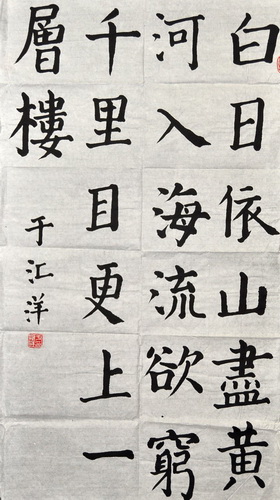 白日依山盡黄
河入海流欲窮
千里目更上一
層樓
于汇洋